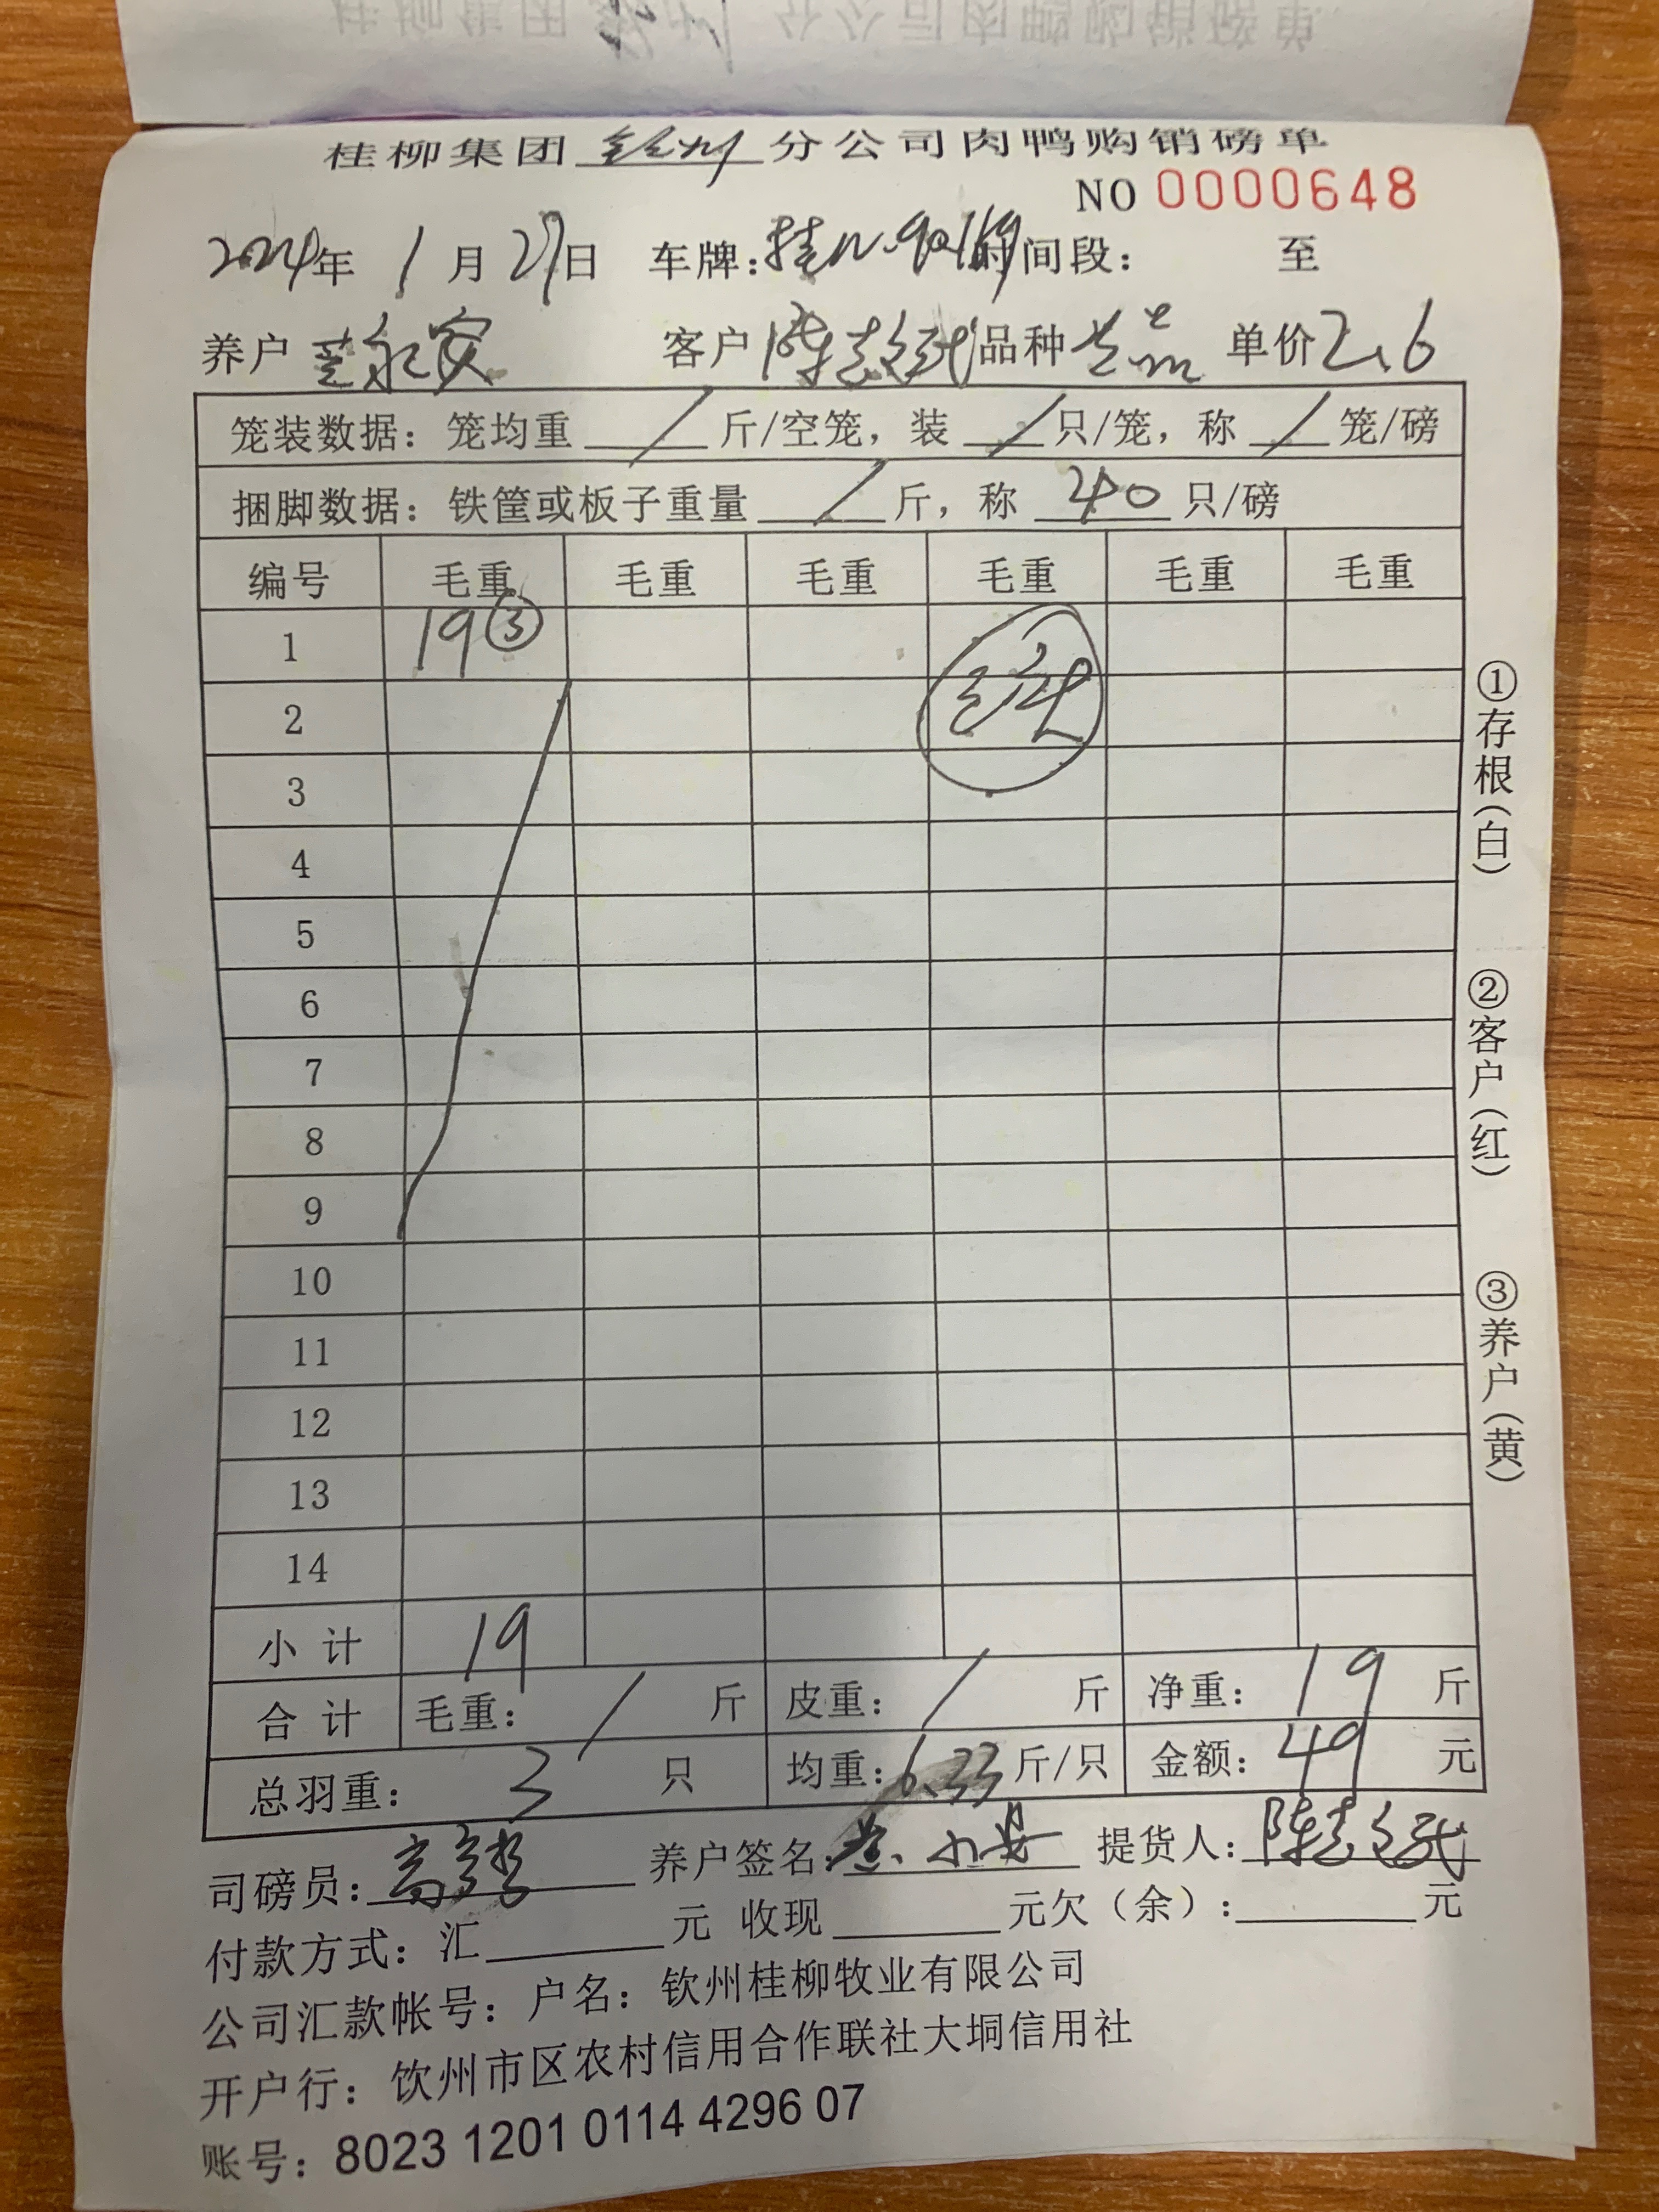 桂柳集团钦州分公司肉鸭购销磅单
NO 0000648
2024年 1月29日 车牌:桂N 时间段: 至
养户 永安 客户 陈志 品种 单价2.6
笼装数据:笼均重 / 斤/空笼,装 / 只/笼,称 / 笼/磅
捆脚数据:铁筐或板子重量 / 斤,称 40 只/磅
编号 毛重 毛重 毛重 毛重 毛重 毛重
1 19 ③
2
3
4
5
6
7
8
9
10
11
12
13
14
小计 19
合计 毛重: / 斤 皮重: / 斤 净重: 19 斤
总羽重: 3 只 均重:6.33斤/只 金额: 49 元
司磅员: 养户签名: 提货人:陈志
付款方式:汇 元 收现 元欠(余): 元
公司汇款帐号:户名:钦州桂柳牧业有限公司
开户行:钦州市区农村信用合作联社大垌信用社
账号:8023 1201 0114 4296 07
①存根(白)
②客户(红)
③养户(黄)